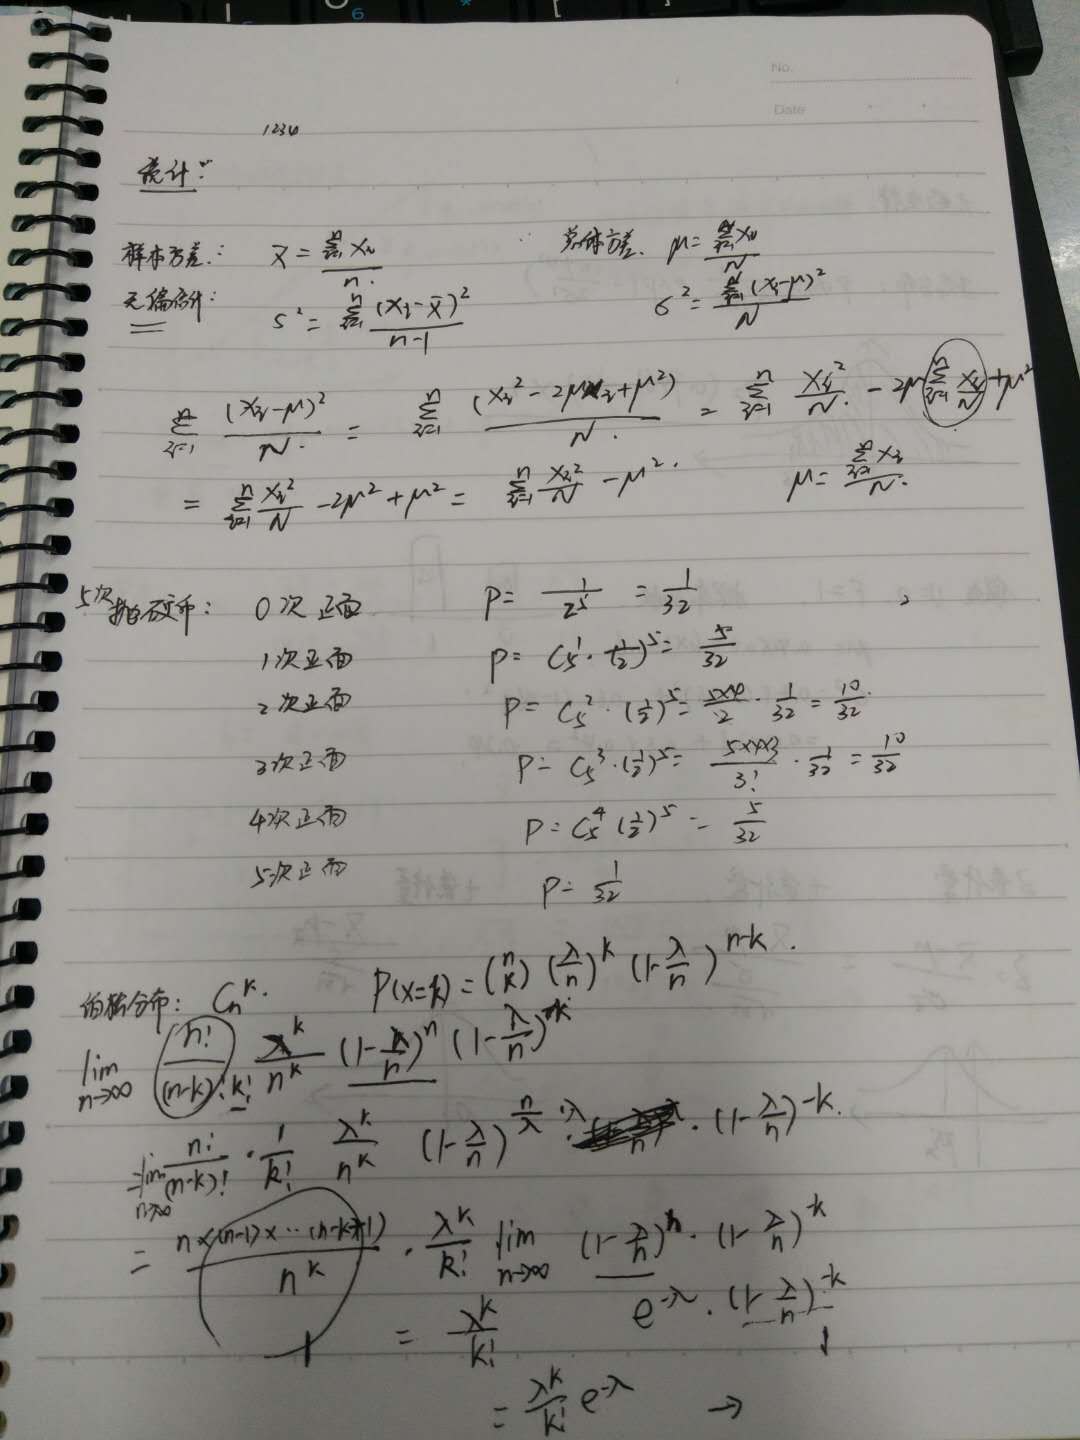 No.
Date
1234
统计:
样本方差: x̄ = Σ_{i=1}^{n} x_i / n. 总体方差. μ = Σ_{i=1}^{N} x_i / N
无偏估计: s² = Σ_{i=1}^{n} (x_i - x̄)² / (n-1) σ² = Σ_{i=1}^{N} (x_i - μ)² / N
Σ_{i=1}^{n} (x_i - μ)² / N. = Σ_{i=1}^{n} (x_i² - 2μx_i + μ²) / N. = Σ_{i=1}^{n} x_i² / N. - 2μ Σ_{i=1}^{n} x_i / N + μ²
= Σ_{i=1}^{n} x_i² / N - 2μ² + μ² = Σ_{i=1}^{n} x_i² / N - μ². μ = Σ_{i=1}^{n} x_i / N.
5次抛硬币: 0次正面 P = 1/2⁵ = 1/32
1次正面 P = C₅¹·(1/2)⁵ = 5/32
2次正面 P = C₅²·(1/2)⁵ = 5×4/2 · 1/32 = 10/32.
3次正面 P = C₅³·(1/2)⁵ = 5×4×3/3! · 1/32 = 10/32
4次正面 P = C₅⁴(1/2)⁵ = 5/32
5次正面 P = 1/32
泊松分布: Cₙᵏ. P(X=k) = (n k) (λ/n)^k (1-λ/n)^{n-k}.
lim_{n→∞} n!/((n-k)!·k!) λ^k/n^k (1-λ/n)^n (1-λ/n)^{-k}
= lim_{n→∞} n!/(n-k)! · 1/k! λ^k/n^k (1-λ/n)^{n/λ·λ} · (1-λ/n)^{-k}.
= n×(n-1)×···(n-k+1)/n^k · λ^k/k! lim_{n→∞} (1-λ/n)^n · (1-λ/n)^{-k}
1 = λ^k/k! e^{-λ} · (1-λ/n)^{-k}
1
= λ^k/k! e^{-λ} →